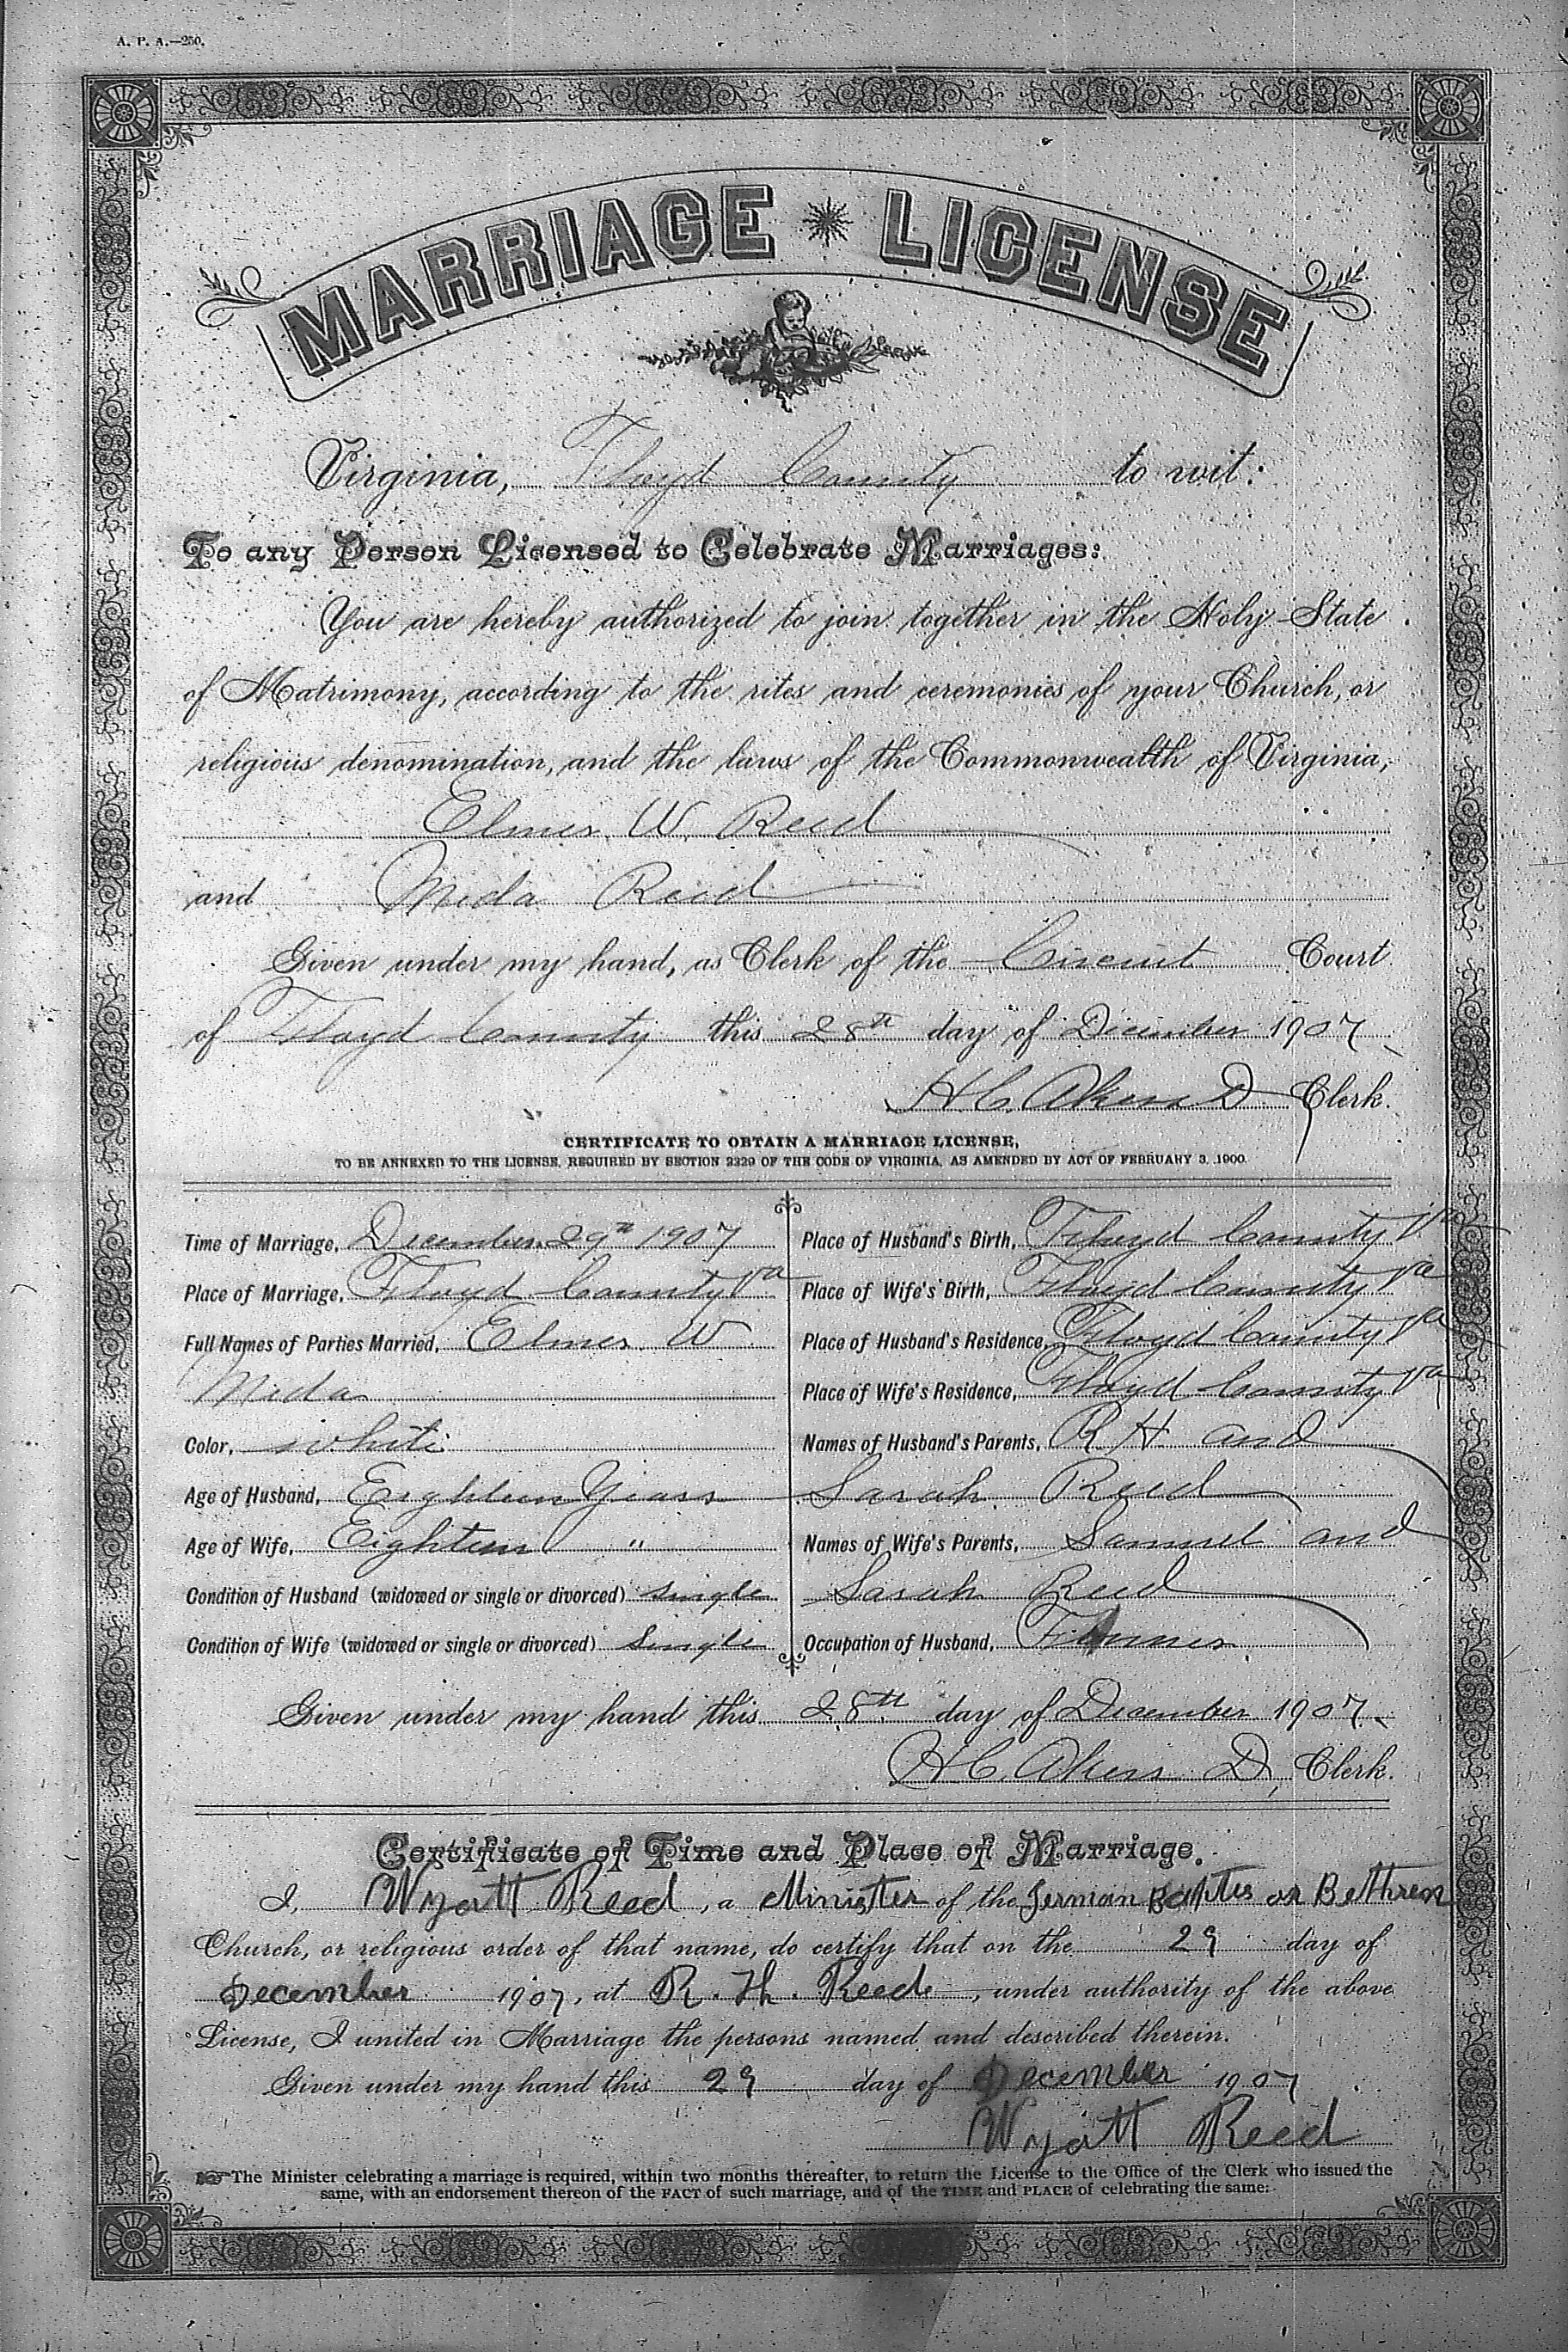 A. P. A.—250.
MARRIAGE LICENSE
Virginia, Floyd County to wit:
To any Person Licensed to Celebrate Marriages:
You are hereby authorized to join together in the Holy State
of Matrimony, according to the rites and ceremonies of your Church, or
religious denomination, and the laws of the Commonwealth of Virginia,
Elmer W. Reed
and Meda Reed
Given under my hand, as Clerk of the Circuit Court
of Floyd County this 28th day of December 1907
H.C. Akers D Clerk.
CERTIFICATE TO OBTAIN A MARRIAGE LICENSE,
TO BE ANNEXED TO THE LICENSE, REQUIRED BY SECTION 2229 OF THE CODE OF VIRGINIA, AS AMENDED BY ACT OF FEBRUARY 3, 1900.
Time of Marriage, December 29th 1907
Place of Marriage, Floyd County Va
Full Names of Parties Married, Elmer W
Meda
Color, white
Age of Husband, Eighteen Years
Age of Wife, Eighteen "
Condition of Husband (widowed or single or divorced) single
Condition of Wife (widowed or single or divorced) Single
Place of Husband's Birth, Floyd County Va
Place of Wife's Birth, Floyd County Va
Place of Husband's Residence, Floyd County Va
Place of Wife's Residence, Floyd County Va
Names of Husband's Parents, R H and
Sarah Reed
Names of Wife's Parents, Samuel and
Sarah Reed
Occupation of Husband, Farmer
Given under my hand this 28th day of December 1907.
H C. Akers D, Clerk.
Certificate of Time and Place of Marriage.
I, Wyatt Reed, a Minister of the German Baptis or Bethren
Church, or religious order of that name, do certify that on the 29 day of
December 1907, at R. H. Reeds, under authority of the above
License, I united in Marriage the persons named and described therein.
Given under my hand this 29 day of December 1907
Wyatt Reed
The Minister celebrating a marriage is required, within two months thereafter, to return the License to the Office of the Clerk who issued the
same, with an endorsement thereon of the FACT of such marriage, and of the TIME and PLACE of celebrating the same.